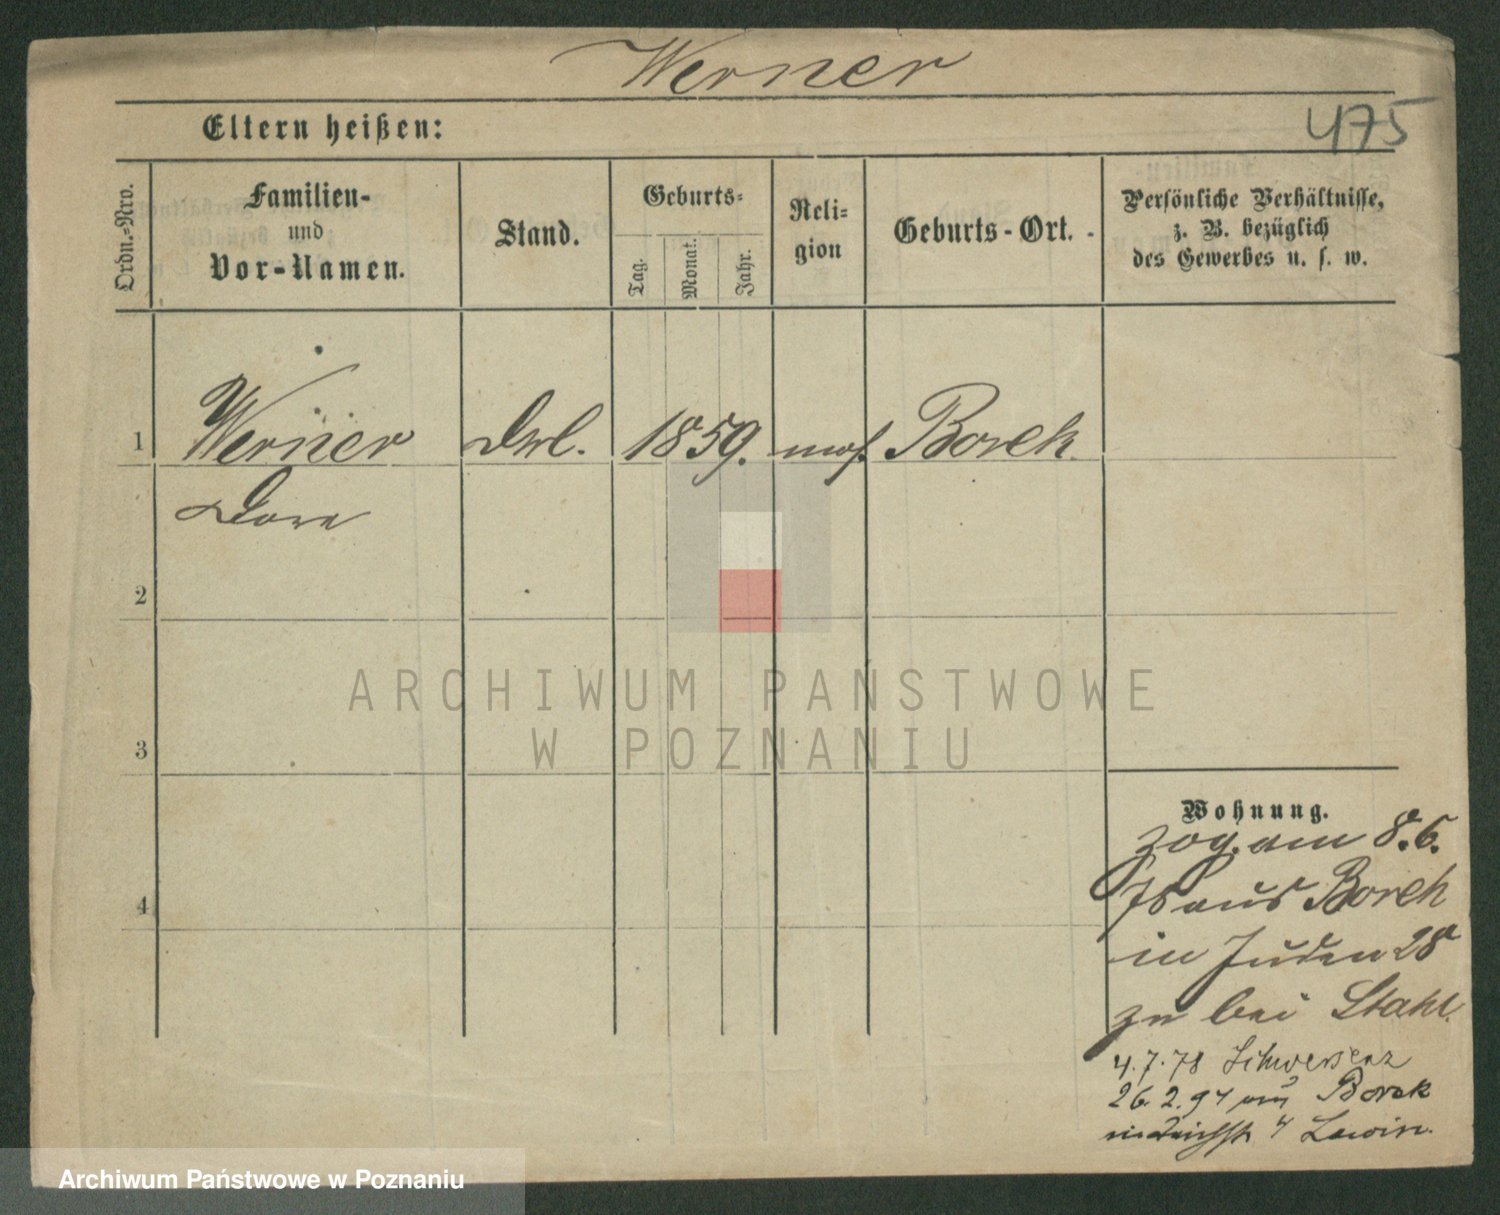 Werner
475
Eltern heißen:
Ordn.-Nro.
Familien-
und
Vor-Namen.
Stand.
Geburts-
Tag.
Monat.
Jahr.
Reli-
gion
Geburts-Ort.
Persönliche Verhältnisse,
z. B. bezüglich
des Gewerbes u. s. w.
1 Werner 1859. mos. Borek
Dora
2
3
4
ARCHIWUM PAŃSTWOWE
W POZNANIU
Wohnung.
zog. am 8.6.
78 aus Borek
in Juden 28
zu bei Stahl.
4.7.78 Schwersenz
26.2.94 aus Borek
4 Lewin.
Archiwum Państwowe w Poznaniu